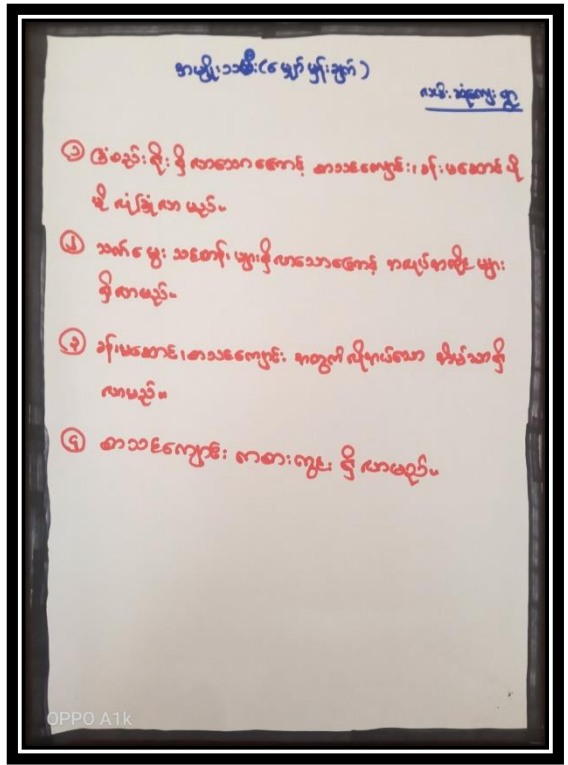 အမျိုးသမီး (မျှော်မှန်းချက်)
ကျေးရွာ
၁ ခြံစည်းရိုး ရှိလာသောကြောင့် စာသင်ကျောင်း၊ ခန်းမဆောင် ပို
မို လုံခြုံလာ မည်။
၂ သက်မွေး သင်တန်း များရှိလာသောကြောင့် အလုပ်အကိုင် များ
ရှိလာမည်။
၃ ခန်းမဆောင်၊ စာသင်ကျောင်း အတွက် လိုအပ်သော အိမ်သာရှိ
လာမည်။
၄ စာသင်ကျောင်း ကစားကွင်း ရှိ လာမည်။
OPPO A1k